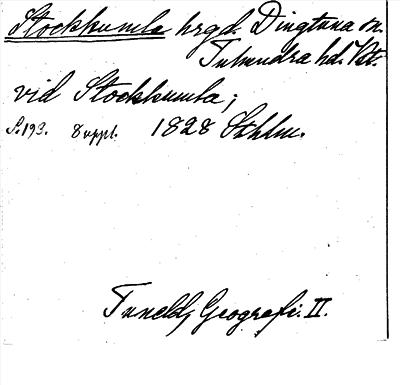 Stockkumla hrgd. Dingtuna sn.
Tuhundra hd. Vst.
vid Stockkumla;
S. 193. 8 uppl. 1828 Sthlm.
Tuneld, Geografi. II.